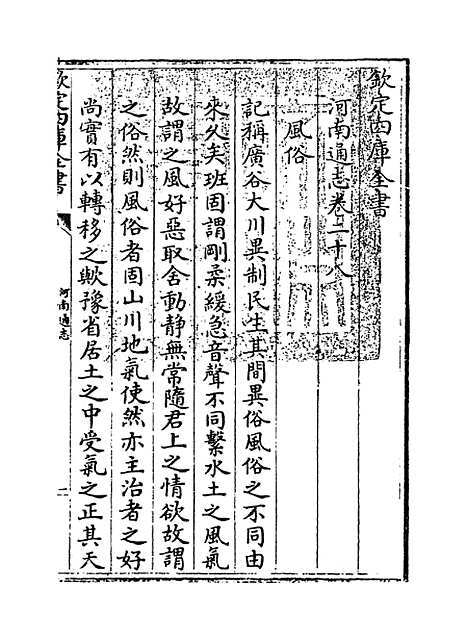 欽定四庫全書
河南通志卷二十八
風俗
記稱廣谷大川異制民生其間異俗風俗之不同由
來久矣班固謂剛柔緩急音聲不同繫水土之風氣
故謂之風好惡取舍動静無常隨君上之情欲故謂
之俗然則風俗者固山川地氣使然亦主治者之好
尚實有以轉移之歟豫省居土之中受氣之正其天
欽定四庫全書
河南通志